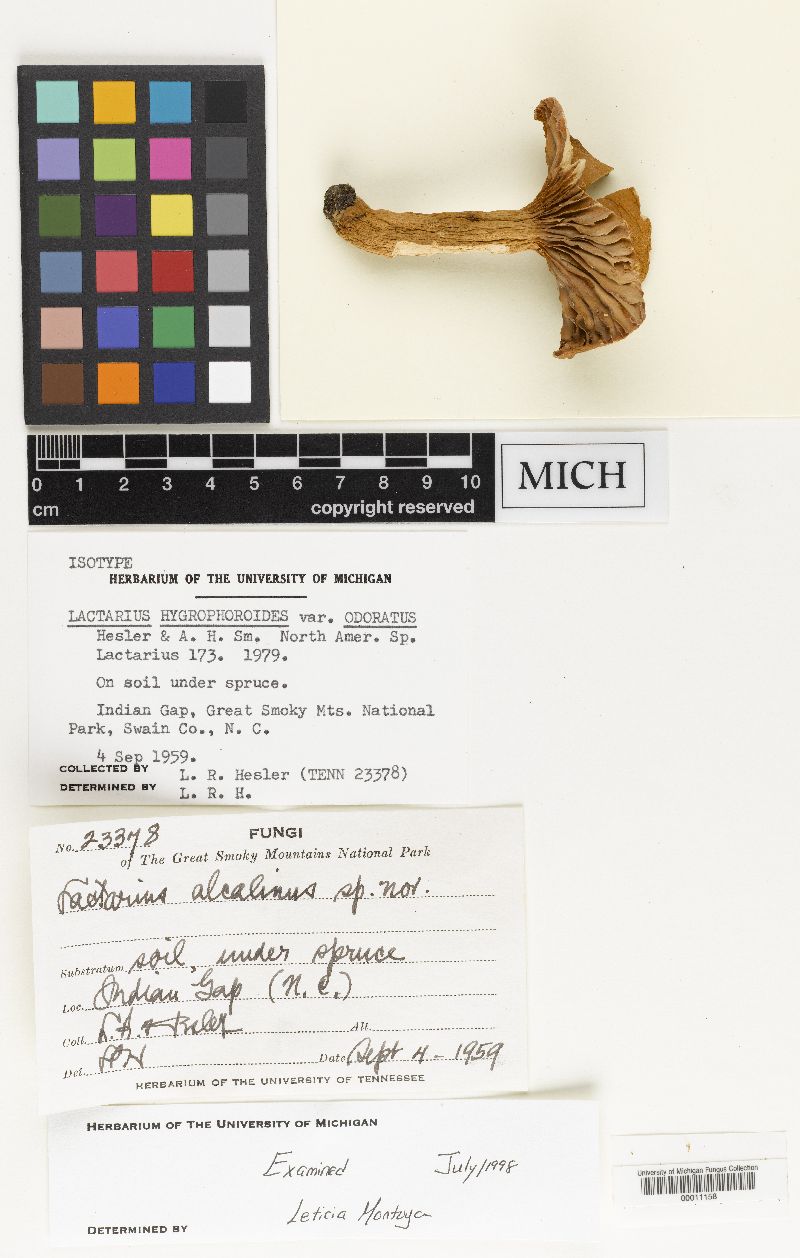 0 1 2 3 4 5 6 7 8 9 10
cm copyright reserved
MICH
ISOTYPE
HERBARIUM OF THE UNIVERSITY OF MICHIGAN
LACTARIUS HYGROPHOROIDES var. ODORATUS
Hesler & A. H. Sm. North Amer. Sp.
Lactarius 173. 1979.
On soil under spruce.
Indian Gap, Great Smoky Mts. National
Park, Swain Co., N. C.
4 Sep 1959.
COLLECTED BY L. R. Hesler (TENN 23378)
DETERMINED BY L. R. H.
No. 23378 FUNGI
of The Great Smoky Mountains National Park
Lactarius alcalinus sp. nov.
Substratum soil, under spruce
Loc. Indian Gap (N. C.)
Coll. Alt.
Det. Date Sept 4 - 1959
HERBARIUM OF THE UNIVERSITY OF TENNESSEE
HERBARIUM OF THE UNIVERSITY OF MICHIGAN
Examined July/1998
Leticia Montoya
DETERMINED BY
University of Michigan Fungus Collection
00011158